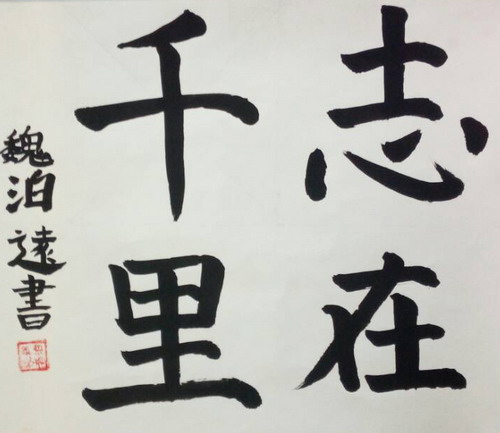 志在
千里
魏泊遠書